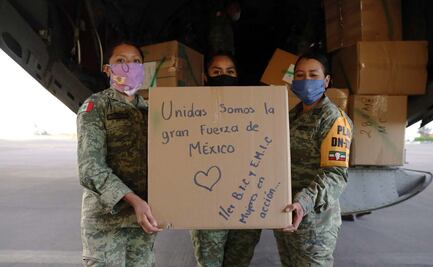 Unidas Somos la
gran Fuerza de
MÉXICO
1/er B.I.C y E.M.I.C
Mujeres en
acción...
PLA
DN-